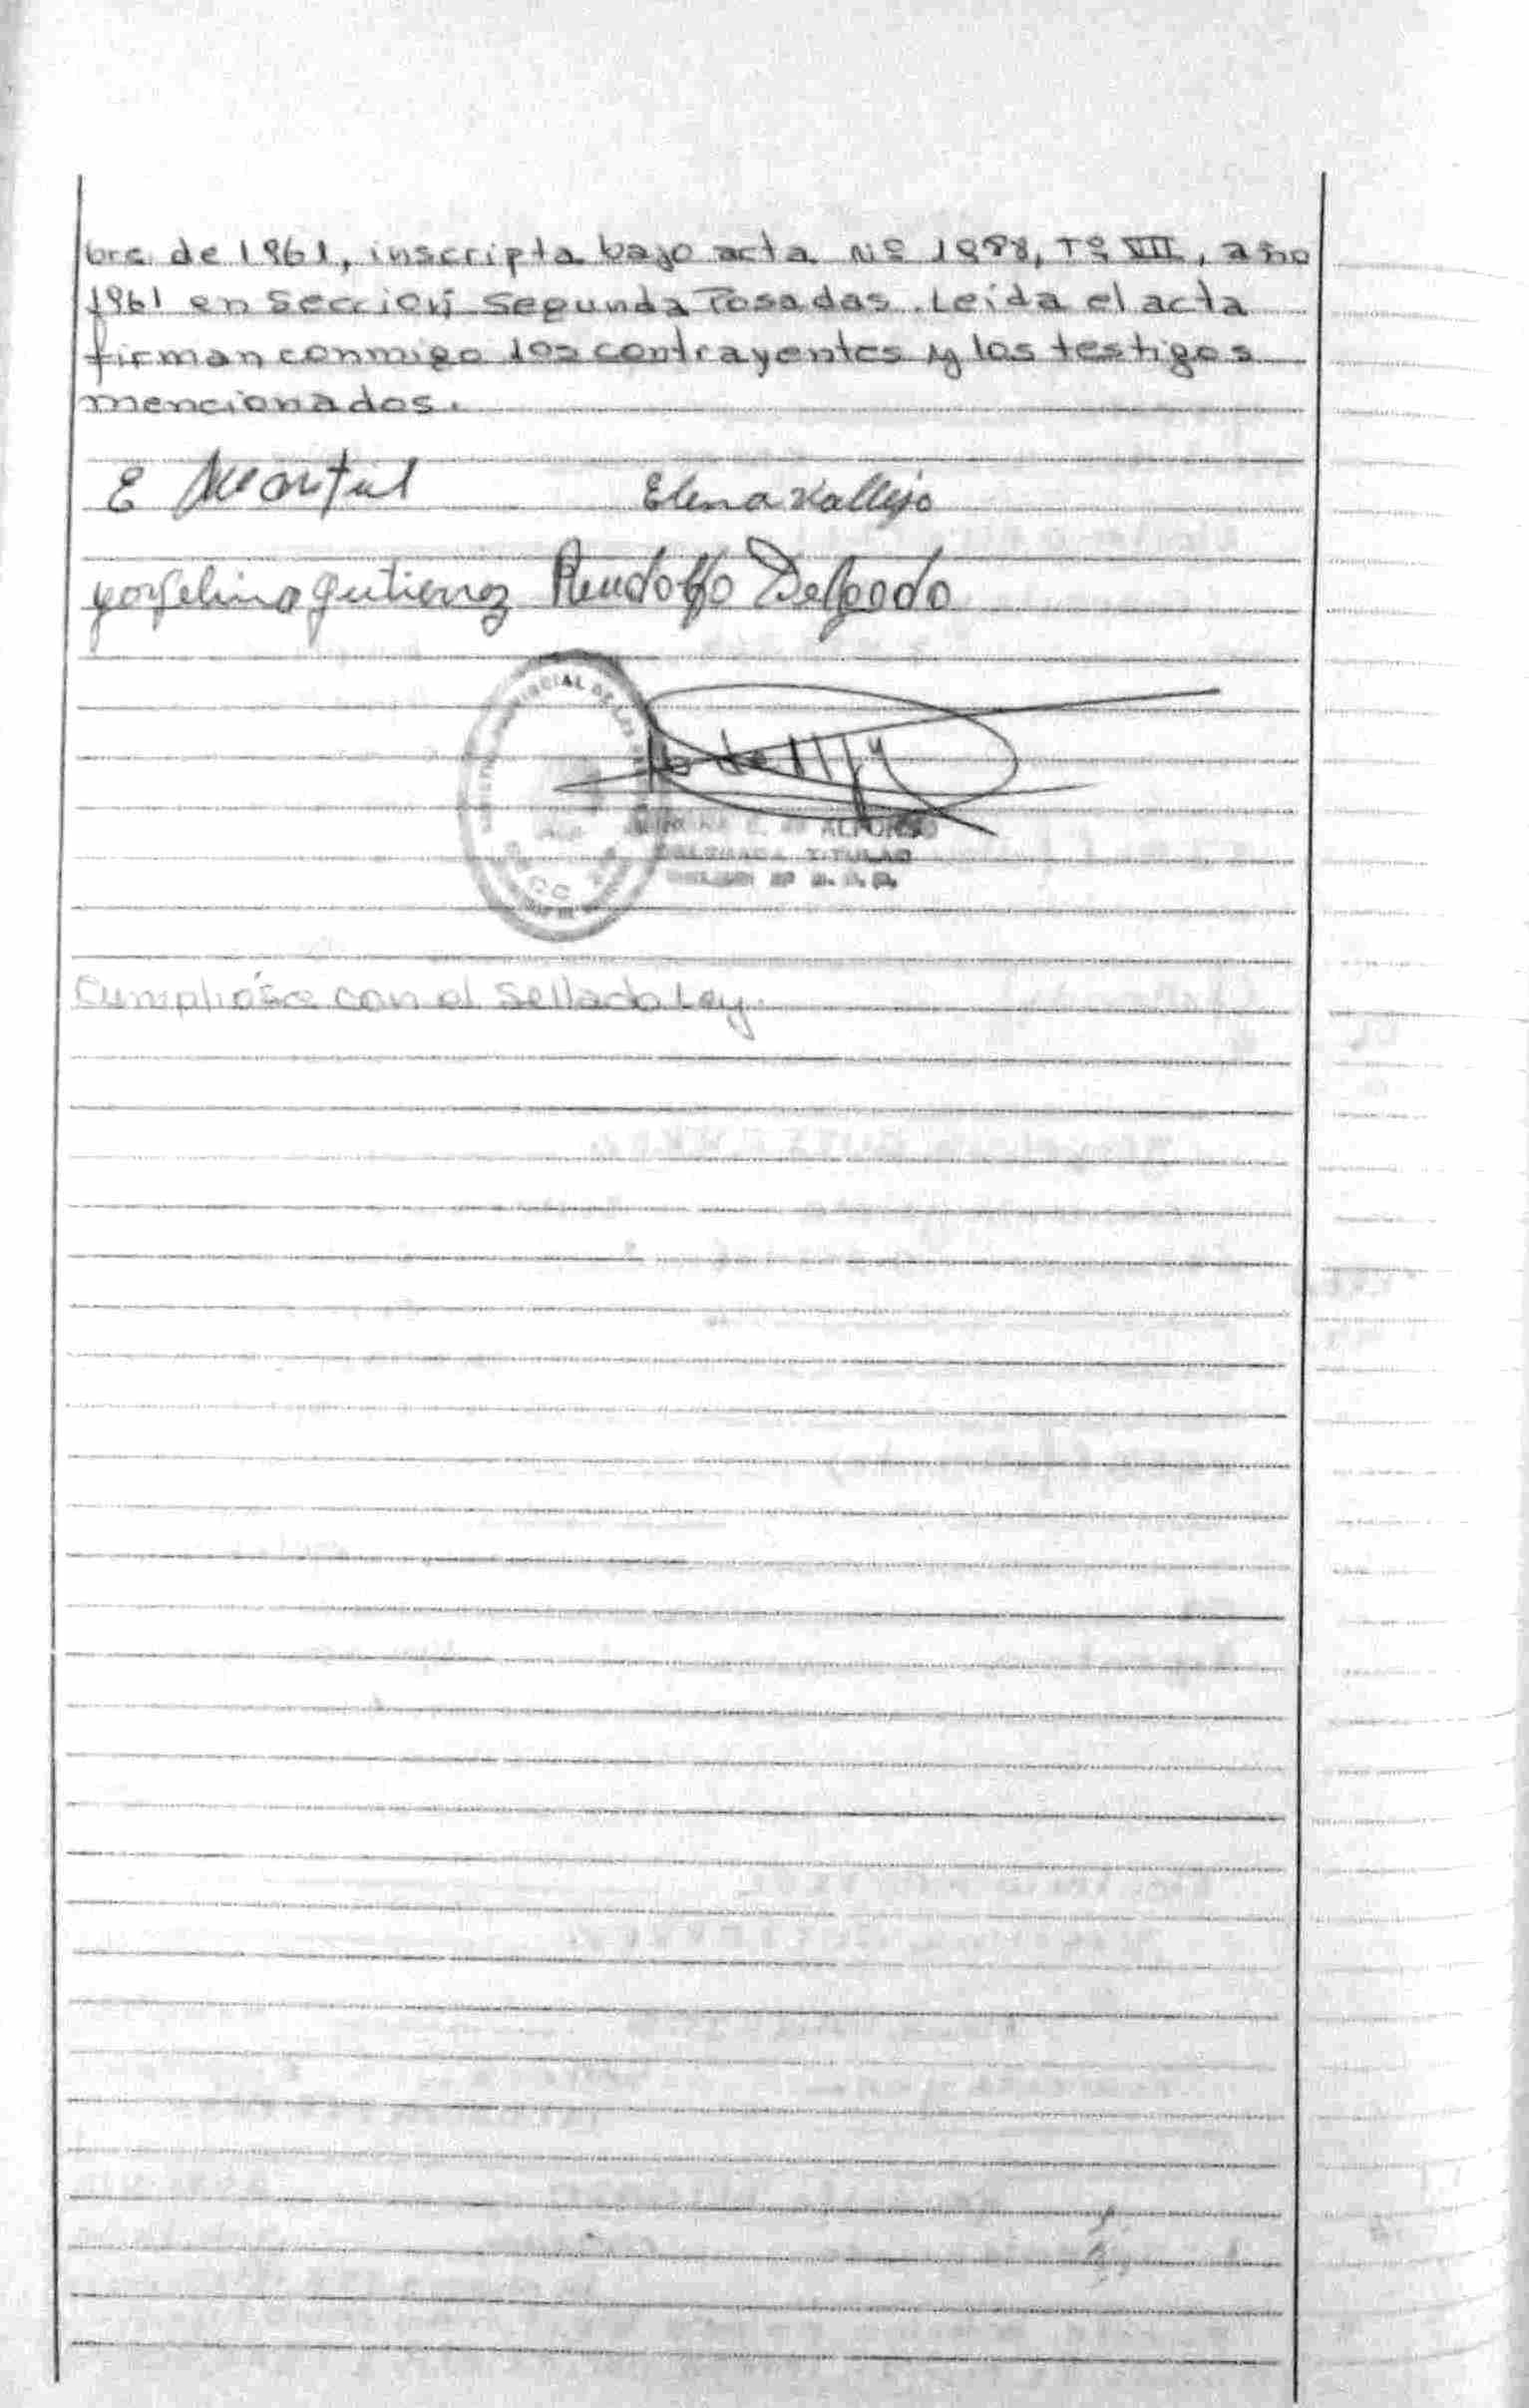 bre de 1961, inscripta bajo acta Nº 1988, Tº VII, año
1961 en Sección Segunda Posadas. Leída el acta
firman conmigo los contrayentes y los testigos
mencionados.
E Elena Vallejo
Gutierrez Rudolfo Delgado
PROVINCIAL DE LAS
ALFONSO
DELEGADA TITULAR
Cumplióse con el Sellado Ley.